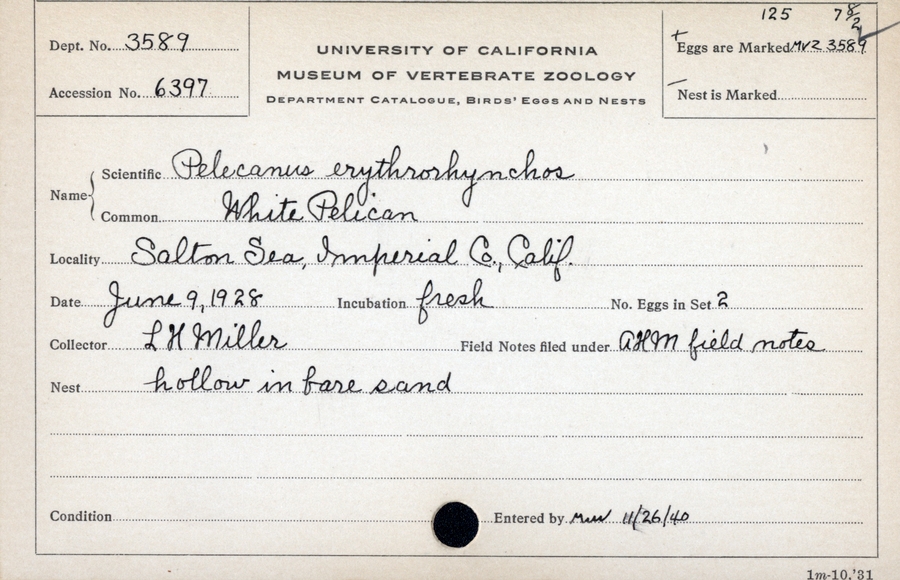 125 7 8/2
Dept. No. 3589
Accession No. 6397
UNIVERSITY OF CALIFORNIA
MUSEUM OF VERTEBRATE ZOOLOGY
DEPARTMENT CATALOGUE, BIRDS' EGGS AND NESTS
+ Eggs are Marked MVZ 3589
– Nest is Marked
Name { Scientific Pelecanus erythrorhynchos
Common White Pelican
Locality Salton Sea, Imperial Co., Calif.
Date June 9, 1928 Incubation fresh No. Eggs in Set 2
Collector L H Miller Field Notes filed under AHM field notes
Nest hollow in bare sand
Condition Entered by 11/26/40
1m-10,'31